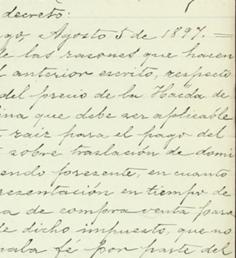 decreto:
go, Agosto 5 de 1897. =
de las razones que hacen
l anterior escrito, respecto
del precio de la Hacda de
ina que debe ser aplicable
raiz para el pago del
sobre traslación de domi
endo presente, en cuanto
resentación en tiempo de
a de compra venta para
e dicho impuesto, que no
mala fé por parte del